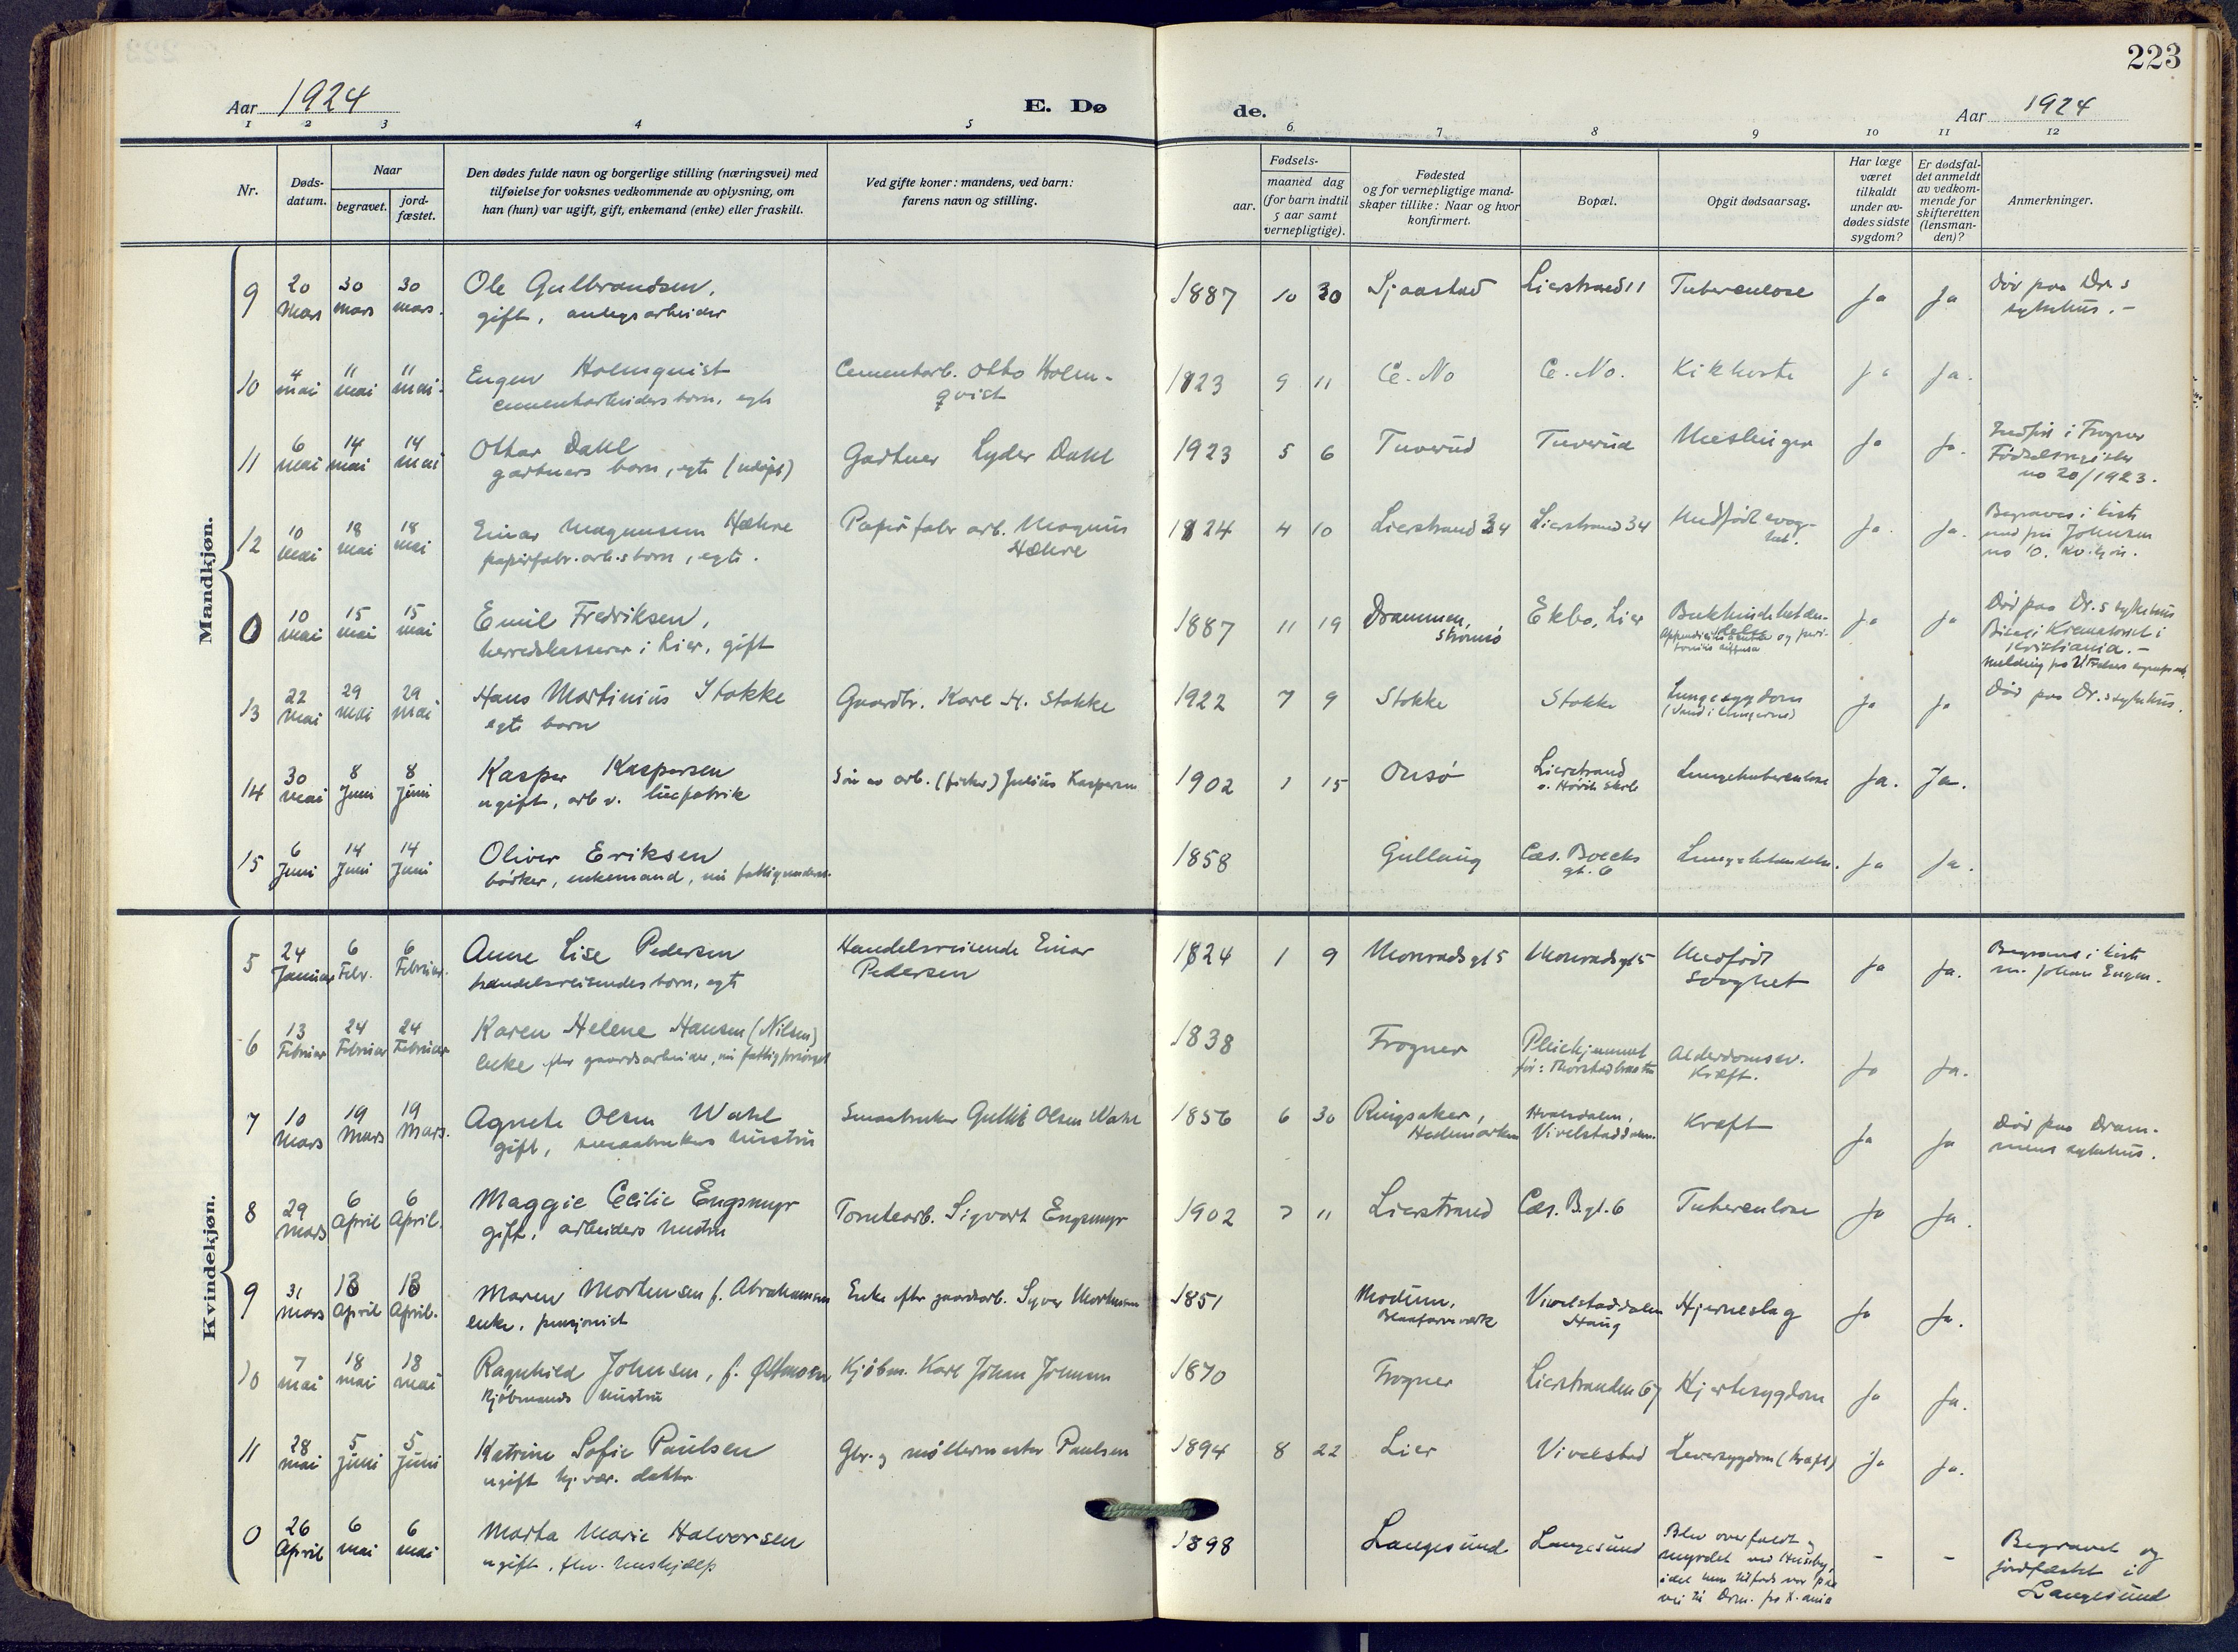 223
Aar 1924
E. Dø
de.
Aar 1924
1 2 3 4 5 6 7 8 9 10 11 12
Nr.
Døds-
datum.
Naar
begravet.
jord-
fæstet.
Den dødes fulde navn og borgerlige stilling (næringsvei) med
tilføielse for voksnes vedkommende av oplysning, om
han (hun) var ugift, gift, enkemand (enke) eller fraskilt.
Ved gifte koner: mandens, ved barn:
farens navn og stilling.
Fødsels-
aar.
maaned dag
(for barn indtil
5 aar samt
vernepligtige).
Fødested
og for vernepligtige mand-
skaper tillike: Naar og hvor
konfirmert.
Bopæl.
Opgit dødsaarsag.
Har læge
været
tilkaldt
under av-
dødes sidste
sygdom?
Er dødsfal-
det anmeldt
av vedkom-
mende for
skifteretten
(lensman-
den)?
Anmerkninger.
Mandkjøn.
9 20 Mars 30 mars 30 mars.
Ole Gulbrandsen,
gift, anlegsarbeider
1887 10 30 Sjaastad Lierstrand 11 Tuberculose Ja Ja
Død paa Dr.s
sykehus. -
10 4 mai 11 mai 11 mai.
Eugen Holmquist
cementarbeiders barn, egte
Cementarb. Otto Holm-
qvist
1923 9 11 C. No C. No. Kikhoste Ja Ja.
11 6 mai 14 mai 14 mai
Ottar Dahl
gartners barn, egte (udøpt)
Gartner Lyder Dahl
1923 5 6 Tuverud Tuverud Meslinger Ja Ja.
Indført i Frogner
Fødselsregister
no 20/1923.
12 10 mai 18 mai 18 mai
Einar Magnussen Hæhre
papirfabr.arb.s barn, egte.
Papirfabr arb. Magnus
Hæhre
1924 4 10 Lierstrand 34 Lierstrand 34 Medfødt svag-
het. Ja. Ja.
Begraves i kiste
med fru Johnsen
no 10. kv.kjøn.
0 10 mai 15 mai 15 mai
Emil Fredriksen,
herredskasserer i Lier, gift
1887 11 19 Drammen,
Strømsø
Ekbo, Lier
Bukhindebetæn-
delse
Ja Ja
Død paa Dr.s sykehus
Krematoriet i
Kristiania. -
13 22 mai 29 mai 29 mai
Hans Martinius Stokke
egte barn
Gaardbr. Karl H. Stokke
1922 7 9 Stokke Stokke Lungesygdom
(Vand i lungerne) Ja Ja
Død paa Dr.s sykehus.
14 30 mai 8 Juni 8 Juni
Kasper Kaspersen
ugift, arb v. limfabrik
Søn av arb. (fisker) Julius Kaspersen
1902 1 15 Onsø Lierstrand
v. Høvik skole
Lungetuberculose Ja. Ja.
15 6 Juni 14 Juni 14 Juni
Oliver Eriksen
bødker, enkemand, nu fattigunderst.
1858 Gullaug Cæs. Boecks
gt. 6
Lungebetændelse. Ja Ja.
Kvindekjøn.
5 24 Januar 6 Febr. 6 Februar.
Anne Lise Pedersen
handelsreisendes barn, egte
Handelsreisende Einar
Pedersen
1924 1 9 Monradsgt 5 Monradsgt 5 Medfødt
svaghet Ja Ja.
Begraves i kiste
m. Johan Engen.
6 13 Februar 24 Februar 24 Februar
Karen Helene Hansen (Nilsen)
enke efter gaardsarbeider, nu fattigforsørget
1838 Frogner Pleiehjemmet
Alderdomssv.
Kræft. Ja Ja.
7 10 Mars 19 Mars 19 Mars.
Agnete Olsen Wahl
gift, smaabrukers hustru
Smaabruker Gullik Olsen Wahl
1856 6 30 Ringsaker,
Hedemarken
Vivelstaddalen.
Kræft Ja Ja
Død paa Dram-
mens sykehus.
8 29 mars 6 April 6 April.
Maggie Cecilie Engsmyr
gift, arbeiders hustru
Tomtearb. Sigvart Engsmyr
1902 7 11 Lierstrand Cæs. B.gt. 6 Tuberculose Ja Ja.
9 31 mars 13 April 13 April.
Maren Mortensen f. Abrahamsen
enke, pensjonist
Enke efter gaardsarb. Syver Mortensen
1851 Modum,
Blaafarveverk
Vivelstaddalen
Haug
Hjerneslag Ja Ja.
10 7 mai 18 mai 18 mai
Ragnhild Johnsen, f.
Kjøbmands hustru
Kjøbm. Karl Johan Johnsen
1870 Frogner Lierstranden 67 Hjertesygdom Ja Ja.
11 28 mai 5 juni 5 juni
Katrine Sofie Paulsen
ugift hj.vær. datter
Gbr. og møllermester Paulsen
1894 8 22 Lier Vivelstad Leversygdom (kræft) Ja Ja.
0 26 April 6 mai 6 mai
Marta Marie Halvorsen
ugift, fhv. hushjælp
1898 Langesund Langesund
Blev overfaldt og
myrdet ved Husebye,
idet hun tilfods var paa
vei til Drm. fra K.ania
- -
Begravet og
jordfæstet i
Langesund